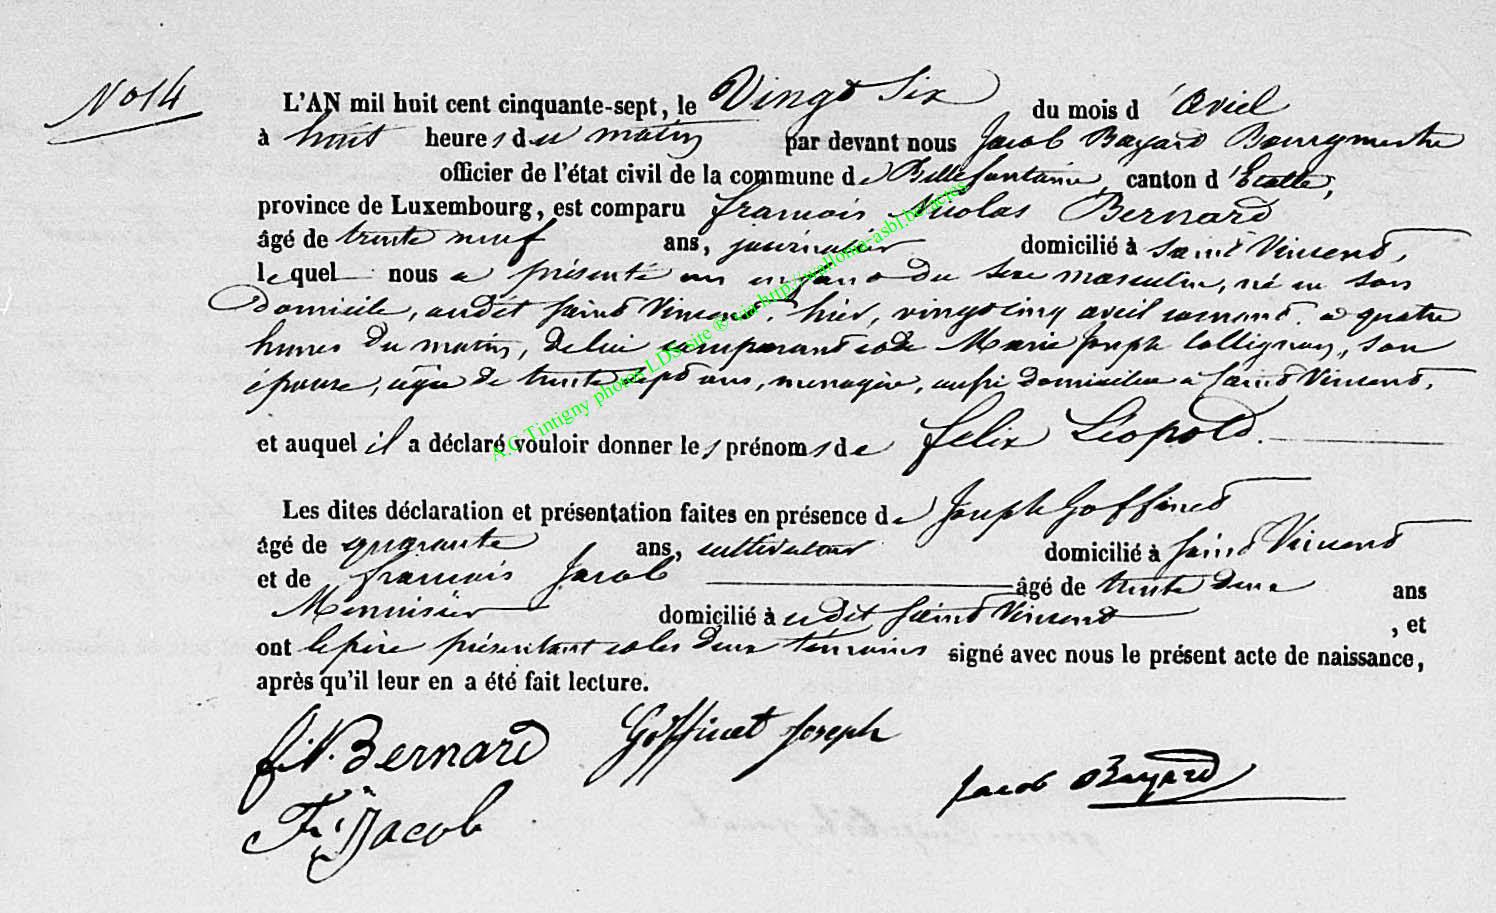 No 14
L'AN mil huit cent cinquante-sept, le Vingt Six du mois d'avril
à huit heures du matin par devant nous Jacob Bayard Bourgmestre
officier de l'état civil de la commune de Bellefontaine, canton d'Etalle,
province de Luxembourg, est comparu françois Nicolas Bernard
âgé de trente neuf ans, journalier domicilié à Saint Vincent,
lequel nous a présenté un enfant du sexe masculin, né en son
domicile, audit Saint Vincent, hier, vingt cinq avril courant, a quatre
heures du matin, de lui comparant et de Marie Joseph Collignon, son
épouse, agée de trente sept ans, menagère, aussi domiciliée a Saint Vincent,
et auquel il a déclaré vouloir donner les prénoms de felix Léopold.
Les dites déclaration et présentation faites en présence de Joseph Goffinet
âgé de quarante ans, cultivateur domicilié à Saint Vincent
et de françois Jacob âgé de trente deux ans
Menuisier domicilié à udit Saint Vincent , et
ont le père présentant et les deux témoins signé avec nous le présent acte de naissance,
après qu'il leur en a été fait lecture.
f. N. Bernard Goffinet Joseph
Jacob Bayard
Fr. Jacob
A.G Tintigny photos LDS site ® via http://wallonia-asbl.be/actes